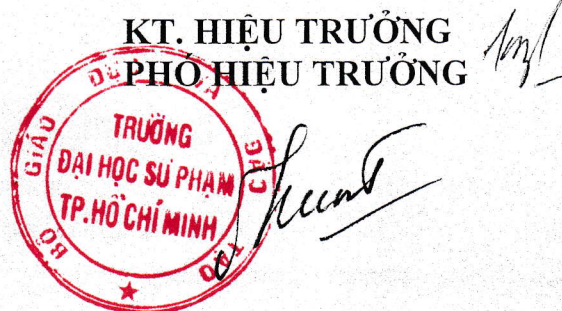 KT. HIỆU TRƯỞNG
PHÓ HIỆU TRƯỞNG
BỘ GIÁO DỤC VÀ ĐÀO TẠO
TRƯỜNG
ĐẠI HỌC SƯ PHẠM
TP.HỒ CHÍ MINH